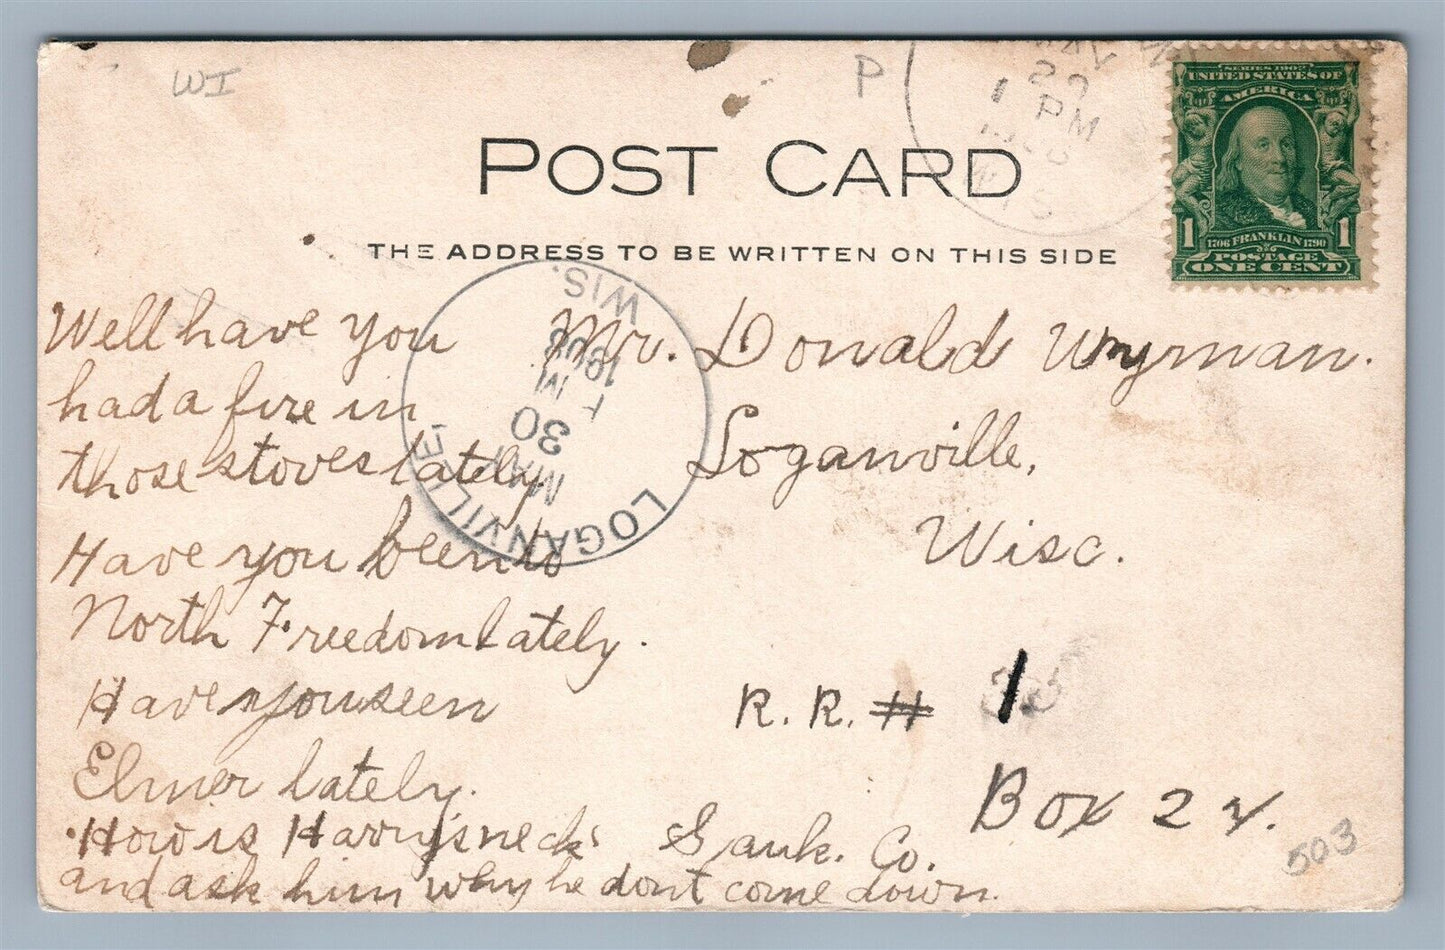 WI
P
27
1 PM
WIS
SERIES 1902
UNITED STATES OF
AMERICA
1 1706 FRANKLIN 1790 1
POSTAGE
ONE CENT
POST CARD
THE ADDRESS TO BE WRITTEN ON THIS SIDE
LOGANVILLE, WIS.
MAY
30
1908
Well have you
had a fire in
those stoves lately.
Have you been to
North Freedom lately.
Have you seen
Elmer lately.
How is Harry's neck
and ask him why he dont come down.
Mr. Donald Wyman.
Loganville,
Wisc.
R. R. # 1
Box 22.
Sauk. Co.
503